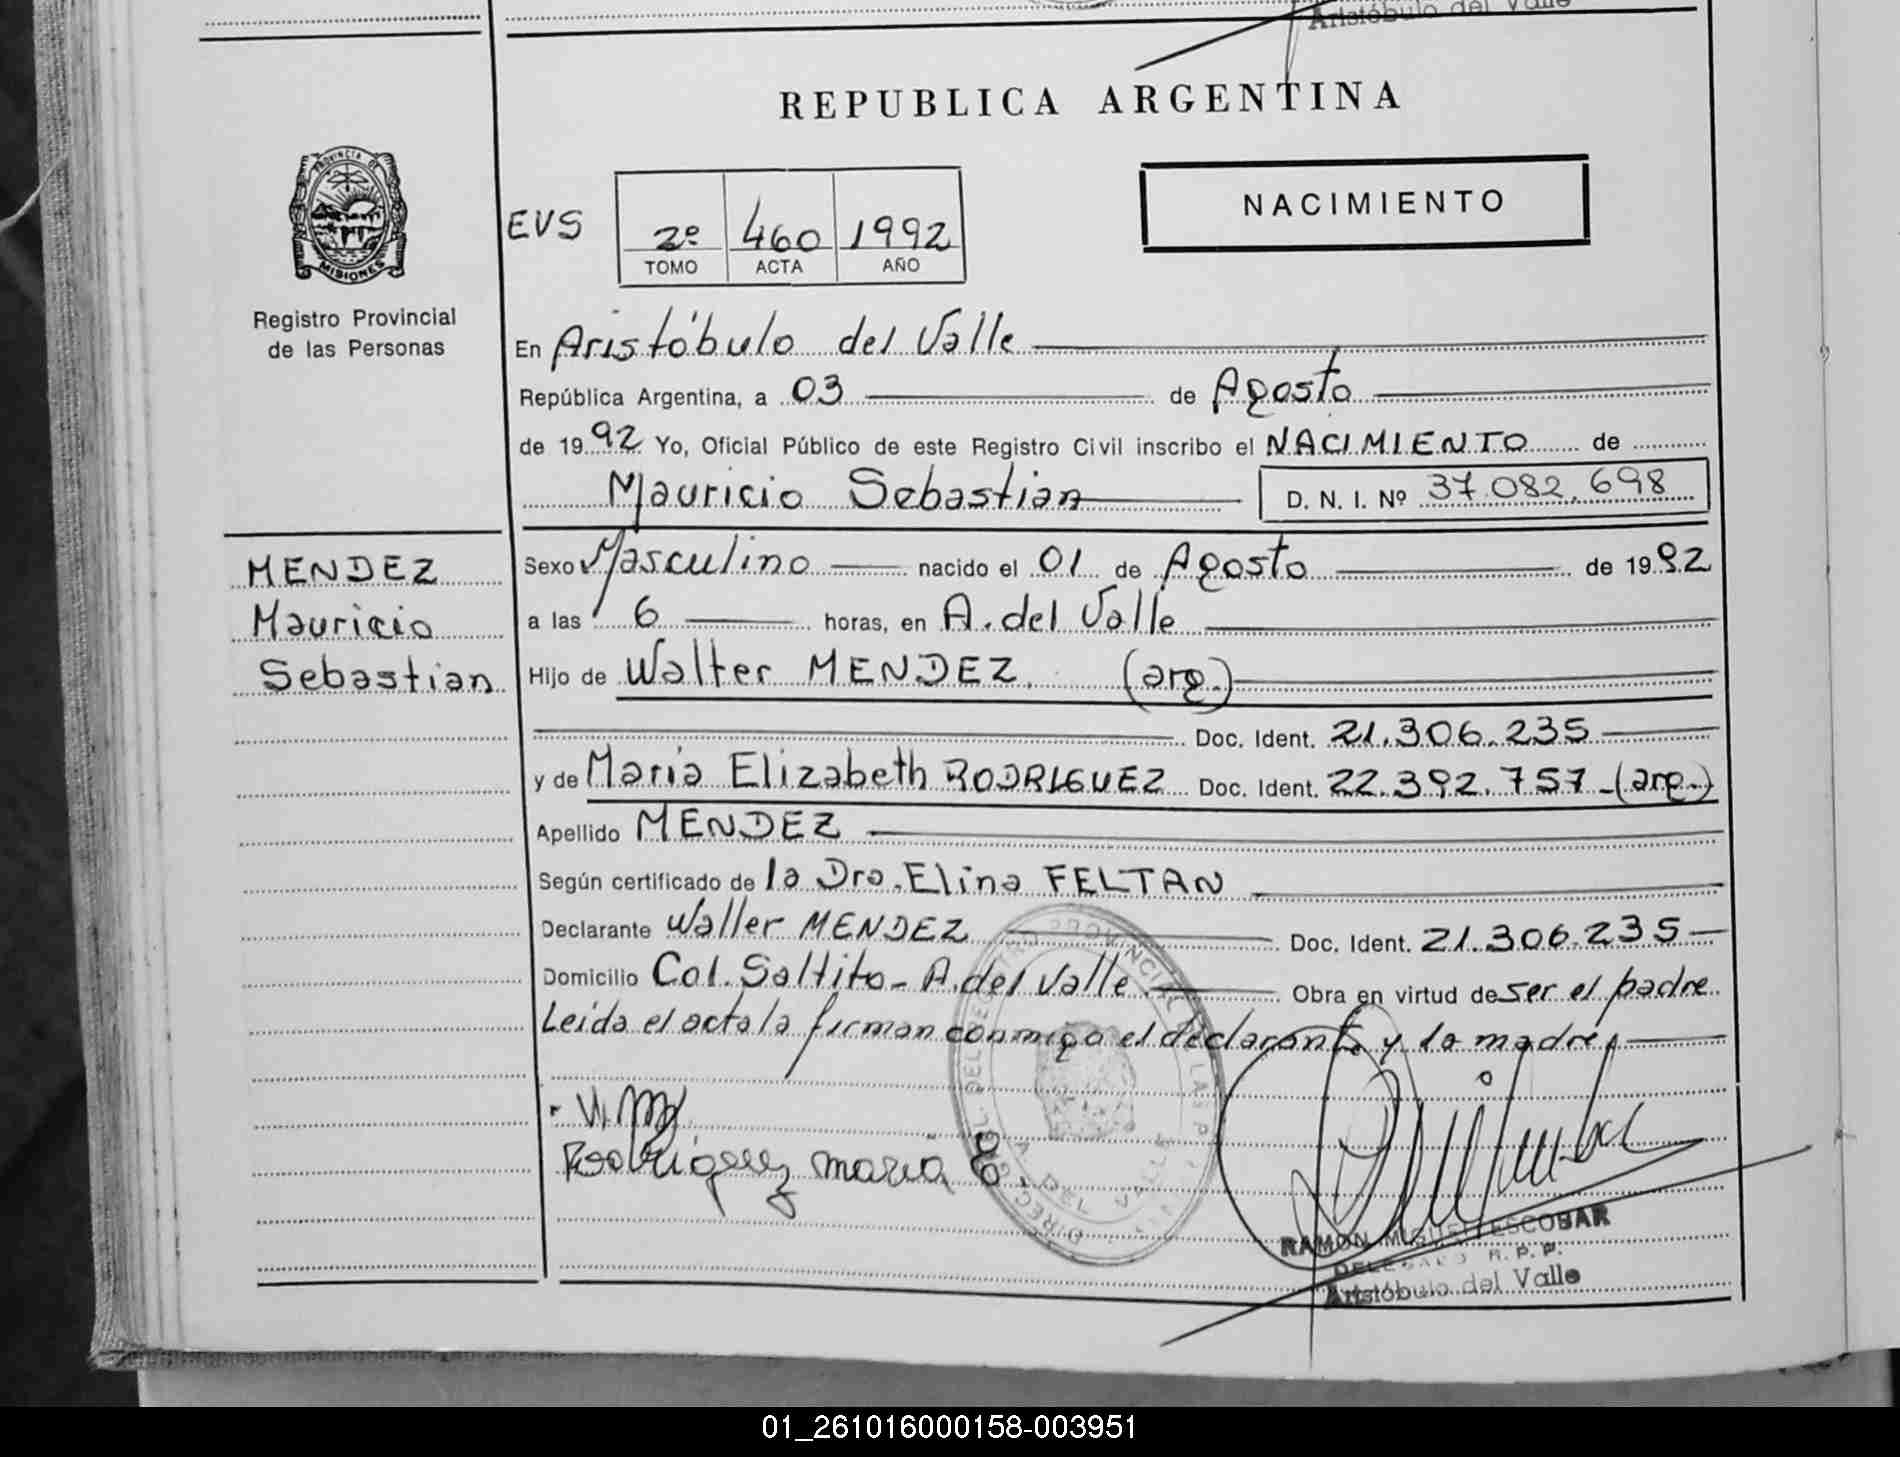 Aristóbulo del Valle
REPUBLICA ARGENTINA
PROVINCIA DE
MISIONES
Registro Provincial
de las Personas
EVS
2º 460 1992
TOMO ACTA AÑO
NACIMIENTO
En Aristóbulo del Valle
República Argentina, a 03 de Agosto
de 1992 Yo, Oficial Público de este Registro Civil inscribo el NACIMIENTO de
Mauricio Sebastian D. N. I. Nº 37.082.698
MENDEZ
Mauricio
Sebastian
Sexo Masculino nacido el 01 de Agosto de 1992
a las 6 horas, en A. del Valle
Hijo de Walter MENDEZ. (arg.)
Doc. Ident. 21.306.235
y de Maria Elizabeth RODRIGUEZ Doc. Ident. 22.392.757 - (arg.)
Apellido MENDEZ
Según certificado de la Dra. Elina FELTAN
Declarante Walter MENDEZ Doc. Ident. 21.306.235
Domicilio Col. Saltito - A. del Valle Obra en virtud de ser el padre
Leida el acta la firman conmigo el declarante y la madre
Rodriguez maria E.
RAMON MIGUEL ESCOBAR
DELEGADO R. P. P.
Aristóbulo del Valle
01_261016000158-003951